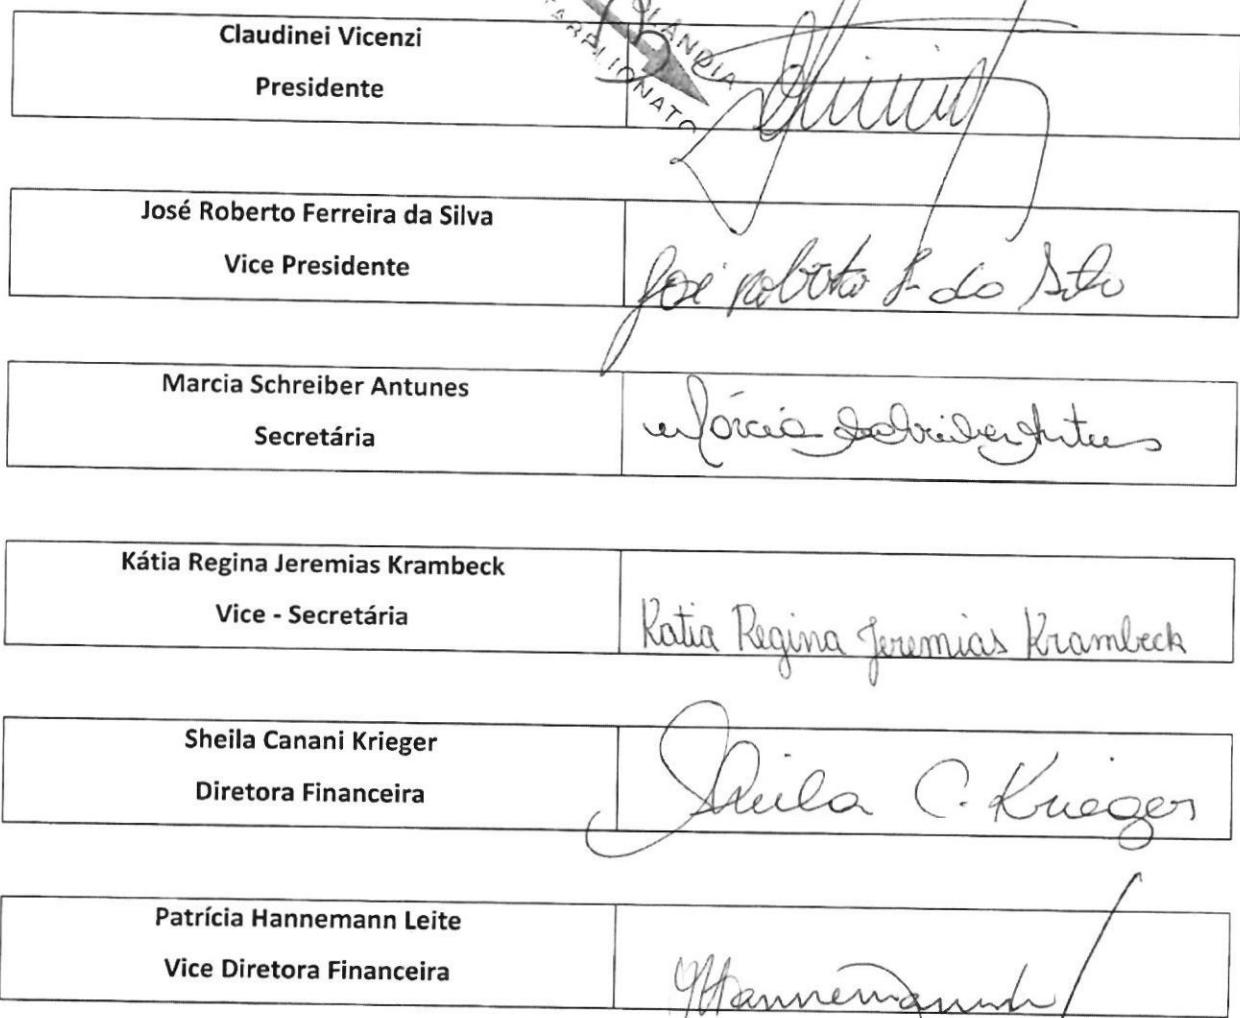 Claudinei Vicenzi
Presidente
TABELIONATO
José Roberto Ferreira da Silva
Vice Presidente
José roberto F. da Silva
Marcia Schreiber Antunes
Secretária
Márcia Schreiber Antunes
Kátia Regina Jeremias Krambeck
Vice - Secretária
Katia Regina Jeremias Krambeck
Sheila Canani Krieger
Diretora Financeira
Sheila C. Krieger
Patrícia Hannemann Leite
Vice Diretora Financeira